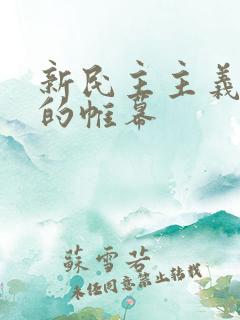 新民主主義
的帷幕
蘇雪若
未经同意禁止转载